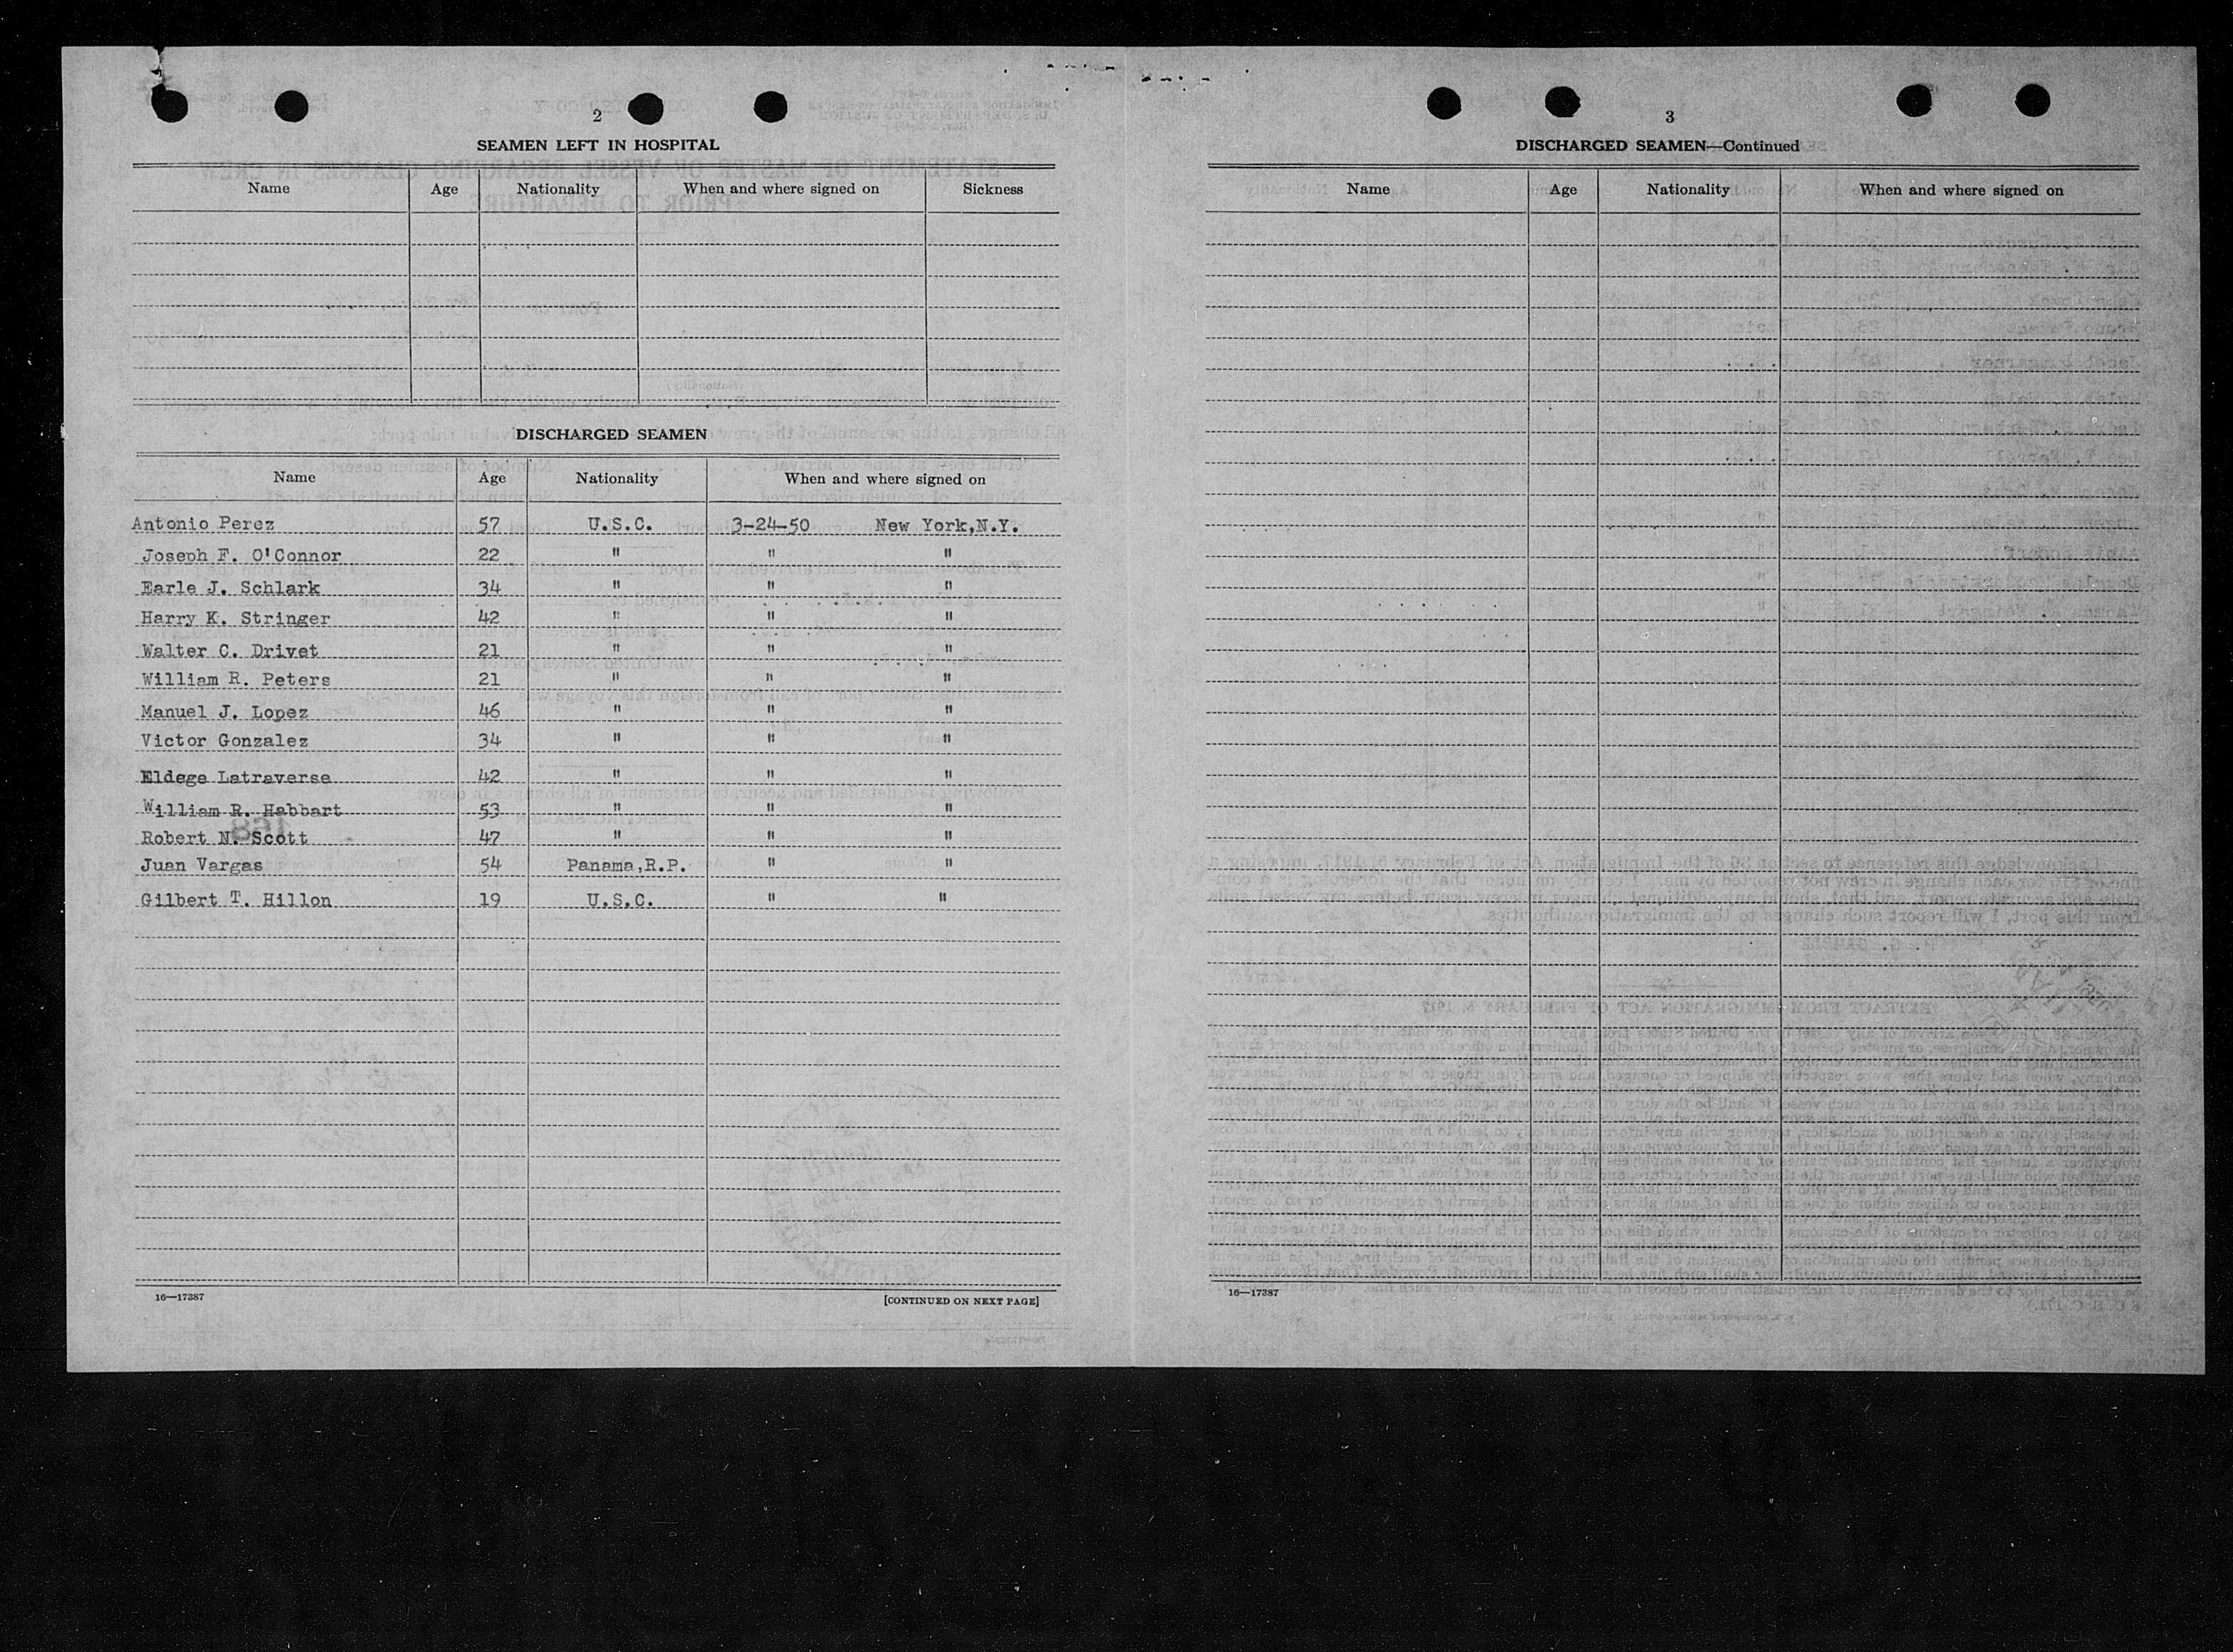 2
SEAMEN LEFT IN HOSPITAL
Name Age Nationality When and where signed on Sickness
DISCHARGED SEAMEN
Name Age Nationality When and where signed on
Antonio Perez 57 U.S.C. 3-24-50 New York,N.Y.
Joseph F. O'Connor 22 " " "
Earle J. Schlark 34 " " "
Harry K. Stringer 42 " " "
Walter C. Drivet 21 " " "
William R. Peters 21 " " "
Manuel J. Lopez 46 " " "
Victor Gonzalez 34 " " "
Eldege Latraverse 42 " " "
William R. Habbart 53 " " "
Robert N. Scott 47 " " "
Juan Vargas 54 Panama,R.P. " "
Gilbert T. Hillon 19 U.S.C. " "
16—17387 [CONTINUED ON NEXT PAGE]
3
DISCHARGED SEAMEN—Continued
Name Age Nationality When and where signed on
16—17387